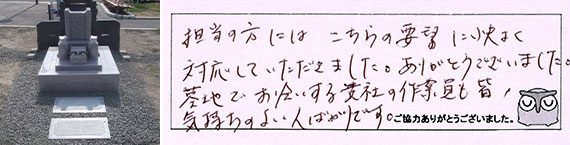 担当の方には こちらの要望に快よく
対応していただきました。ありがとうございました。
墓地でお会いする貴社の作業員も皆、
気持ちのよい人ばかりです。
ご協力ありがとうございました。